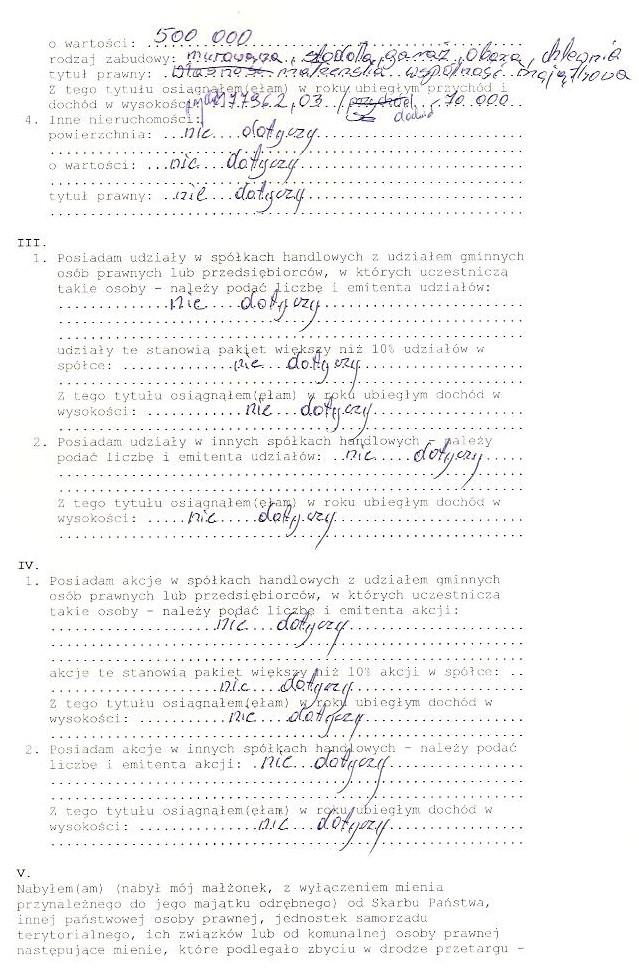 o wartości: 500 000
rodzaj zabudowy: murowana, stodoła, garaż, obora, chlewnia
tytuł prawny: własność małżeńska wspólność majątkowa
Z tego tytułu osiągnąłem(ęłam) w roku ubiegłym przychód i
dochód w wysokości: 177962,03 przychód 70 000
dochód
4. Inne nieruchomości:
powierzchnia: nie dotyczy
o wartości: nie dotyczy
tytuł prawny: nie dotyczy
III.
1. Posiadam udziały w spółkach handlowych z udziałem gminnych
osób prawnych lub przedsiębiorców, w których uczestniczą
takie osoby - należy podać liczbę i emitenta udziałów:
nie dotyczy
udziały te stanowią pakiet większy niż 10% udziałów w
spółce: nie dotyczy
Z tego tytułu osiągnąłem(ęłam) w roku ubiegłym dochód w
wysokości: nie dotyczy
2. Posiadam udziały w innych spółkach handlowych - należy
podać liczbę i emitenta udziałów: nie dotyczy
Z tego tytułu osiągnąłem(ęłam) w roku ubiegłym dochód w
wysokości: nie dotyczy
IV.
1. Posiadam akcje w spółkach handlowych z udziałem gminnych
osób prawnych lub przedsiębiorców, w których uczestniczą
takie osoby - należy podać liczbę i emitenta akcji:
nie dotyczy
akcje te stanowią pakiet większy niż 10% akcji w spółce:
nie dotyczy
Z tego tytułu osiągnąłem(ęłam) w roku ubiegłym dochód w
wysokości: nie dotyczy
2. Posiadam akcje w innych spółkach handlowych - należy podać
liczbę i emitenta akcji: nie dotyczy
Z tego tytułu osiągnąłem(ęłam) w roku ubiegłym dochód w
wysokości: nie dotyczy
V.
Nabyłem(am) (nabył mój małżonek, z wyłączeniem mienia
przynależnego do jego majątku odrębnego) od Skarbu Państwa,
innej państwowej osoby prawnej, jednostek samorządu
terytorialnego, ich związków lub od komunalnej osoby prawnej
następujące mienie, które podlegało zbyciu w drodze przetargu -